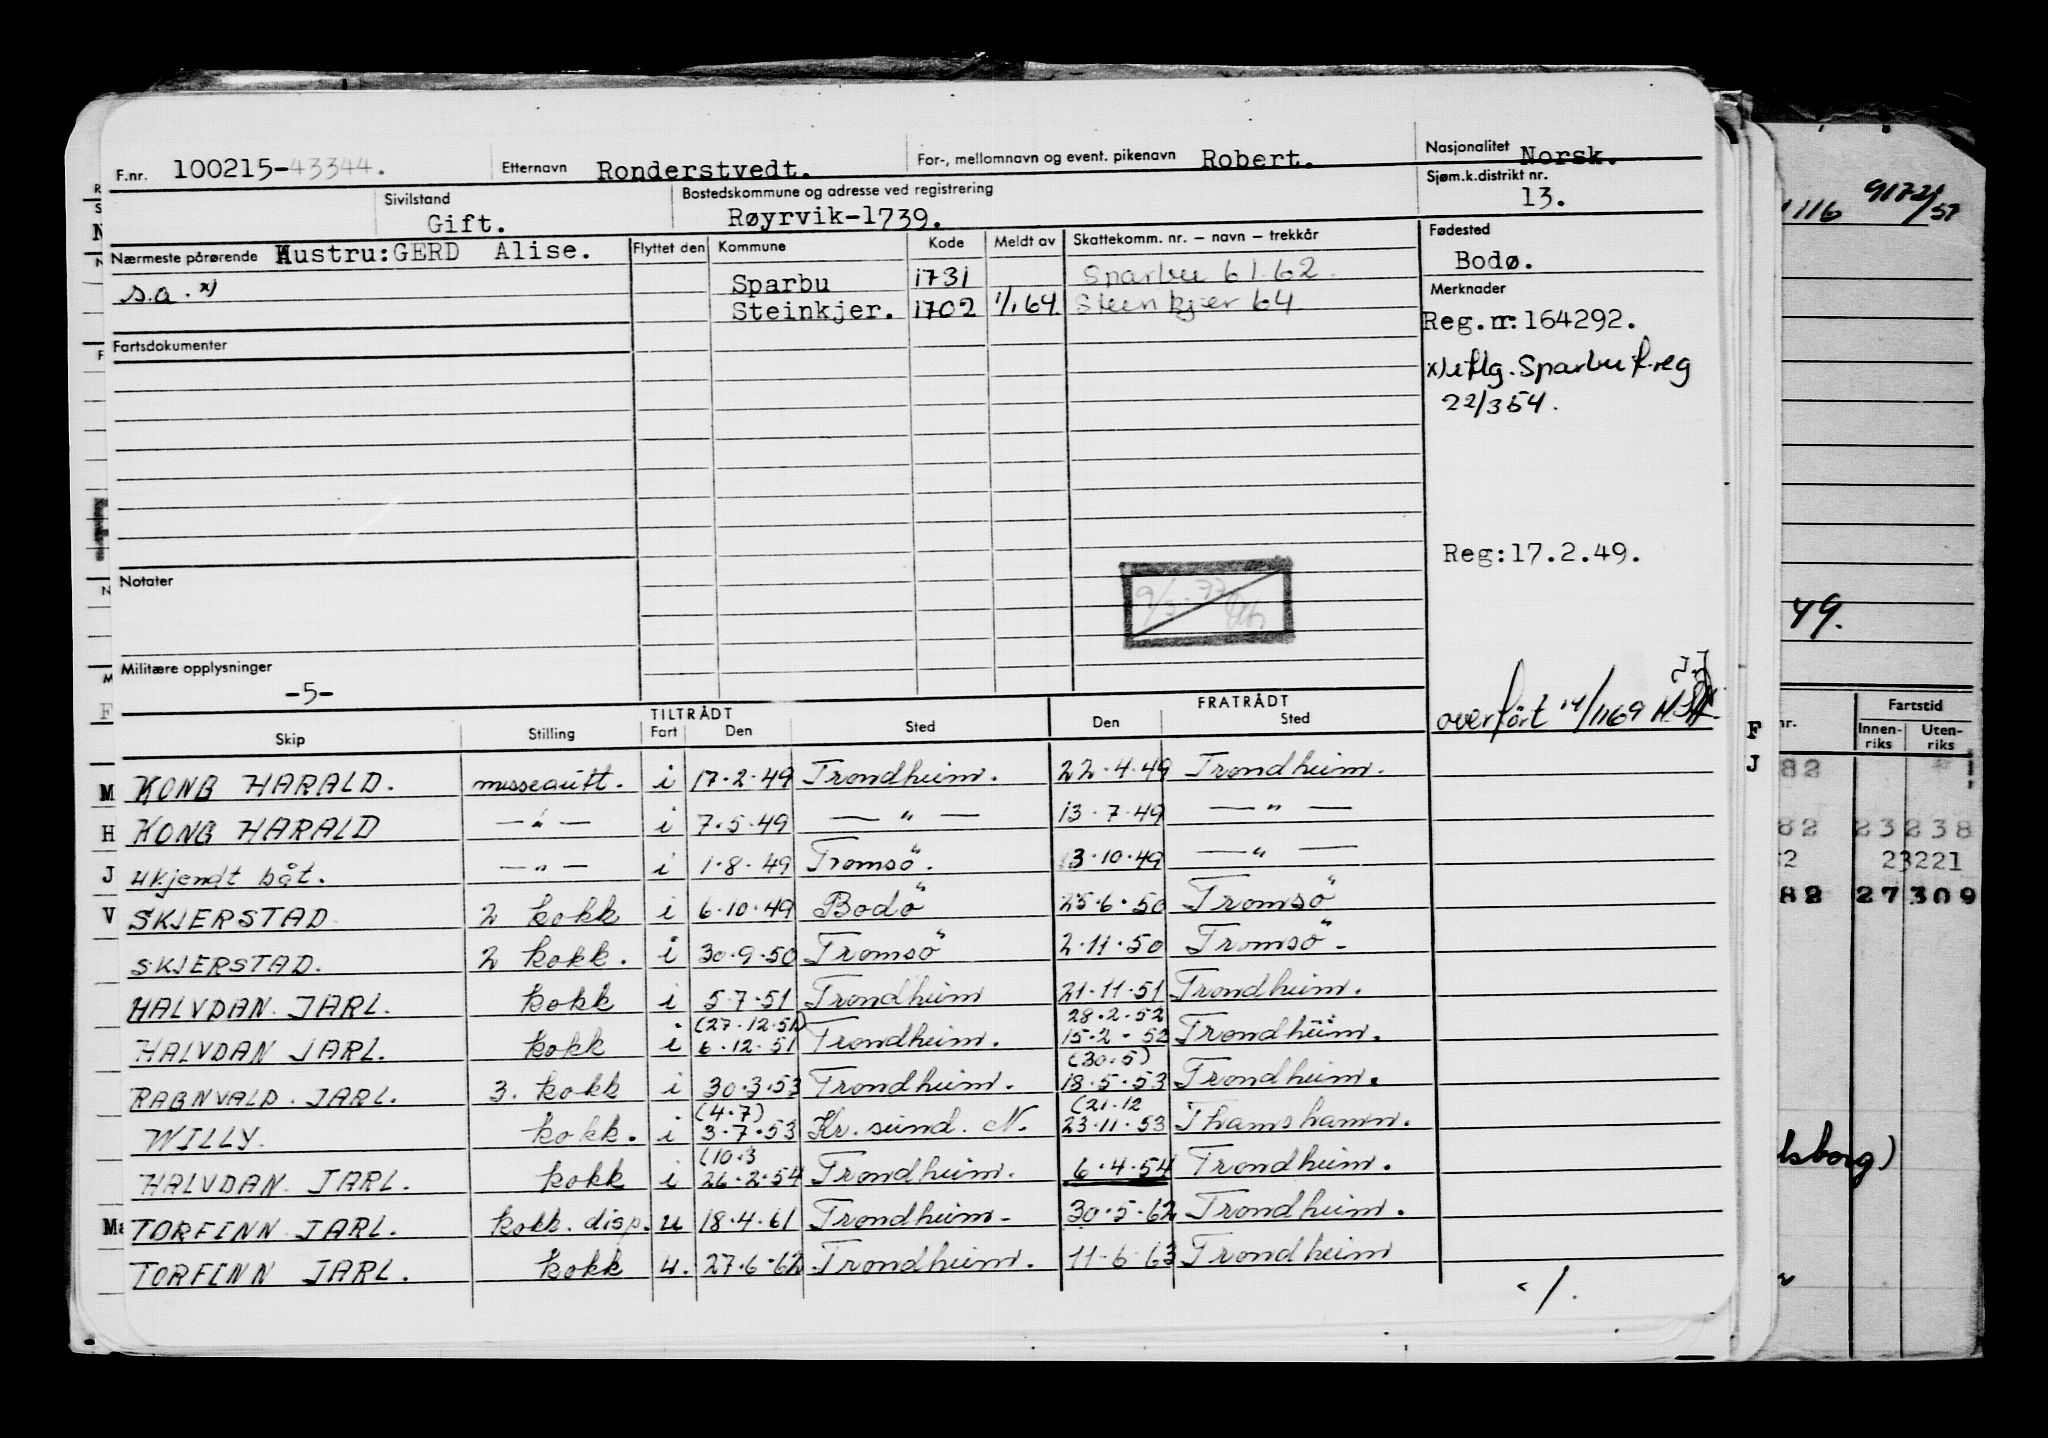 F.nr. 100215-43344. Etternavn Ronderstvedt. For-, mellomnavn og event. pikenavn Robert. Nasjonalitet Norsk.
Sivilstand Gift. Bostedskommune og adresse ved registrering Røyrvik-1739. Sjøm.k.distrikt nr. 13.
Nærmeste pårørende Hustru: GERD Alise. Flyttet den Kommune Kode Meldt av Skattekomm. nr. – navn – trekkår Fødested Bodø.
s.a. x) Sparbu 1731 Sparbu 61.62
Steinkjer. 1702 1/1 64. Steinkjer 64
Merknader
Reg.nr: 164292.
x) iflg. Sparbu f.reg
22/354.
Fartsdokumenter
Reg: 17.2.49.
Notater
Militære opplysninger
-5-
overført 14/1169
TILTRÅDT FRATRÅDT
Skip Stilling Fart Den Sted Den Sted
KONG HARALD. messegutt. i 17.2.49 Trondheim. 22.4.49 Trondheim.
KONG HARALD — " — i 7.5.49 — " — 13.7.49 — " —
ukjendt båt. — " — i 1.8.49 Tromsö. 13.10.49 — " —
SKJERSTAD 2 kokk i 6.10.49 Bodö 25.6.50 Tromsö
SKJERSTAD. 2 kokk. i 30.9.50 Tromsö 2.11.50 Tromsö.
HALVDAN JARL. kokk i 5.7.51 Trondheim 21.11.51 Trondheim.
(27.12.51) 28.2.52
HALVDAN JARL. kokk i 6.12.51 Trondheim. 15.2-52 Trondheim.
(30.5)
RAGNVALD JARL. 3. kokk i 30.3.53 Trondheim. 18.5.53 Trondheim.
(4.7) (21.12
WILLY. kokk. i 3.7.53 Kr.sund. N. 23.11.53 Thamshamn.
(10.3
HALVDAN JARL. kokk i 26.2.54 Trondheim. 6.4.54 Trondheim.
TORFINN JARL. kokk. disp. u 18.4.61 Trondheim. 30.5.62 Trondheim.
TORFINN JARL. kokk u. 27.6.62 Trondheim. 11.6.63 Trondheim
M
H
J
V
F
J
116 9172/57
49.
Fartstid
Innen-riks Uten-riks
82
82 23238
2 23221
82 27309
lsborg)